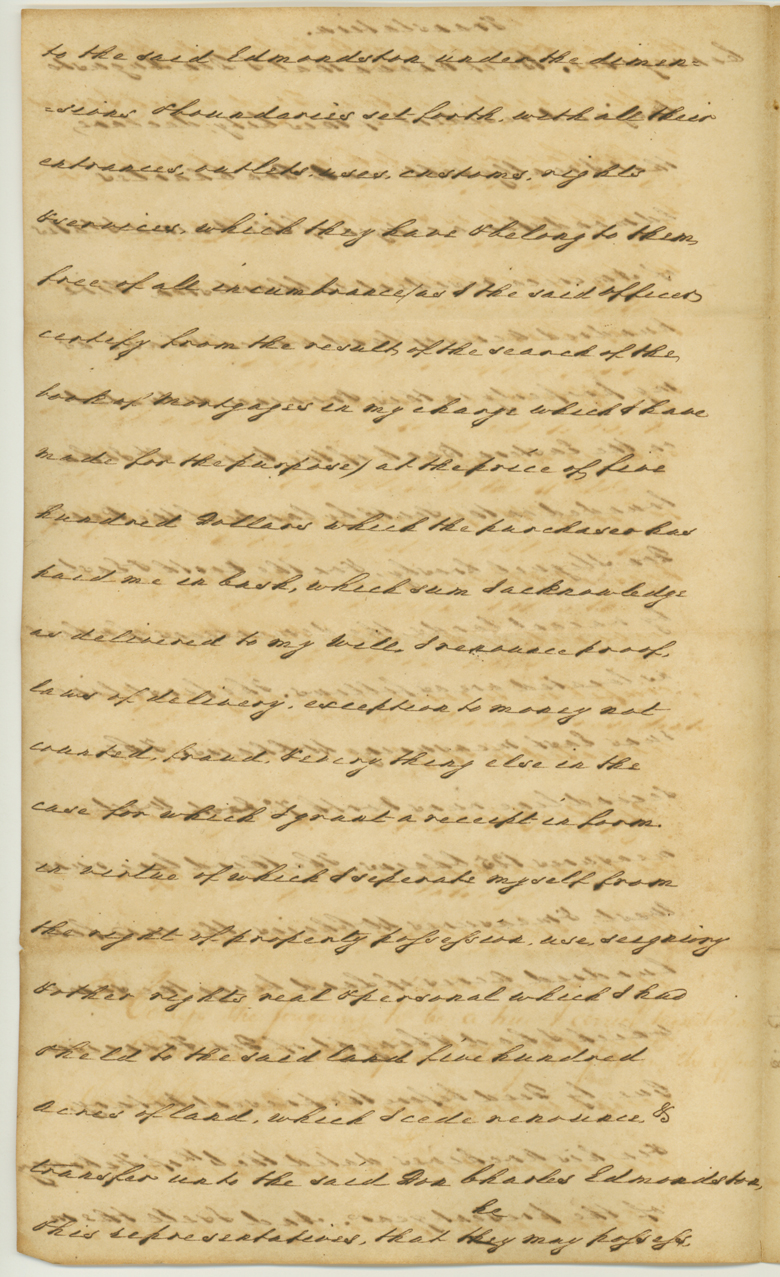 to the said Edmondston under the dimen=
=sions & boundaries set forth, with all their
entrances, outlets, uses, customs, rights
& services, which they have & belong to them,
free of all incumbrance (as I the said officer
certify from the result of the search of the
book of Mortgages in my charge which I have
made for the purpose) at the price of five
hundred Dollars which the purchaser has
paid me in Cash, which sum I acknowledge
as delivered to my Will, I renounce proof,
laws of delivery, exception to money not
counted, fraud, & every thing else in the
case for which I grant a receipt in form
in virtue of which I seperate myself from
the right of property possession, use, seigniory
& other rights real & personal which I had
& held to the said land five hundred
Acres of land, which I cede renounce &
transfer unto the said Don Charles Edmondston,
& his representatives, that he may possess,